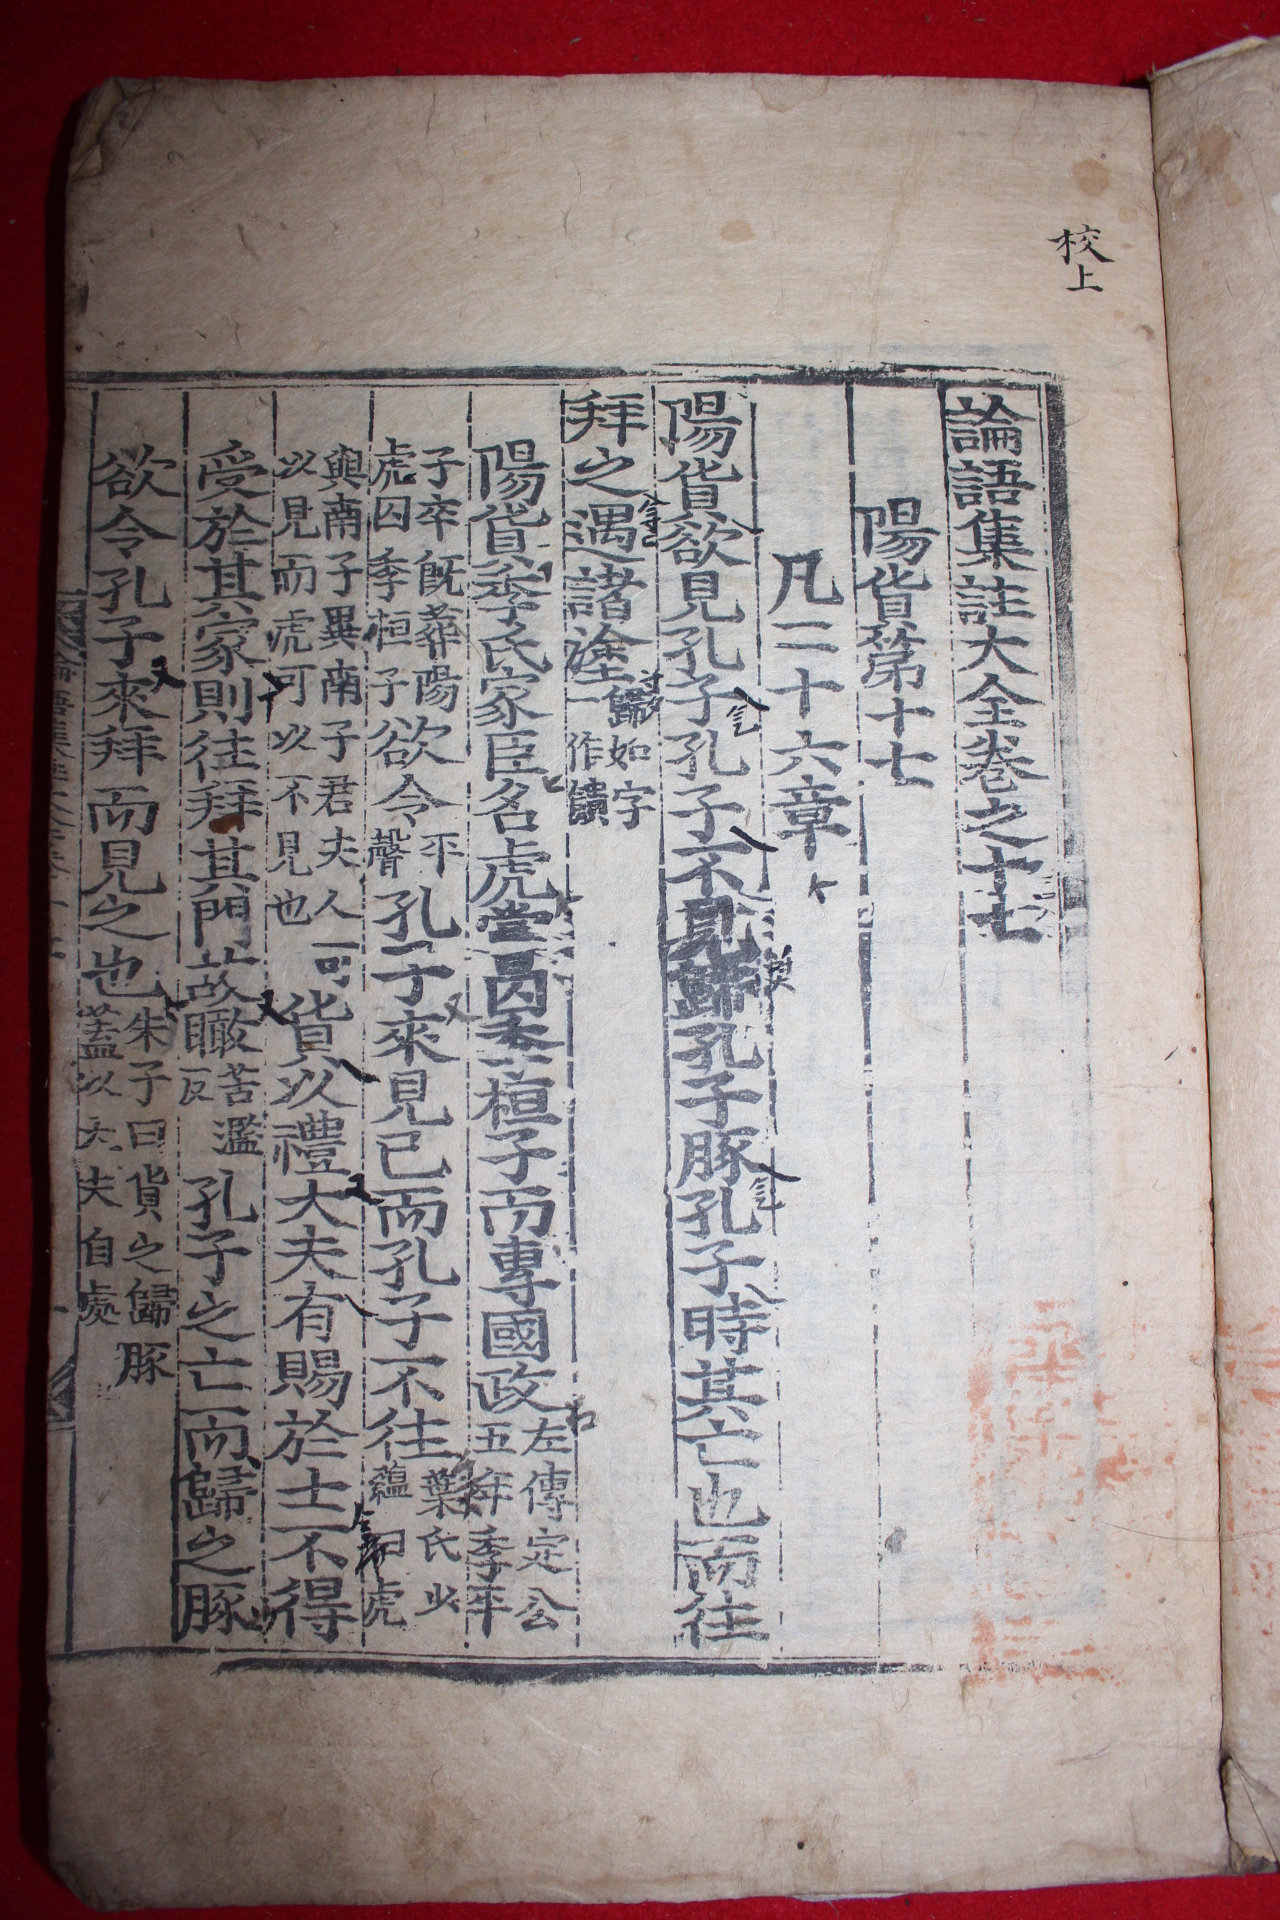 校上
論語集註大全卷之十七
陽貨第十七
凡二十六章
陽貨欲見孔子孔子不見歸孔子豚孔子時其亡也而往
拜之遇諸塗歸如字一作饋
陽貨季氏家臣名虎嘗囚季桓子而專國政左傳定公五年季平
子卒旣葬陽虎囚季桓子欲令平聲孔子來見己而孔子不往葉氏少蘊曰虎
與南子異南子君夫人可以見而虎可以不見也貨以禮大夫有賜於士不得
受於其家則往拜其門故瞰苦濫反孔子之亡而歸之豚
欲令孔子來拜而見之也朱子曰貨之歸豚蓋以大夫自處